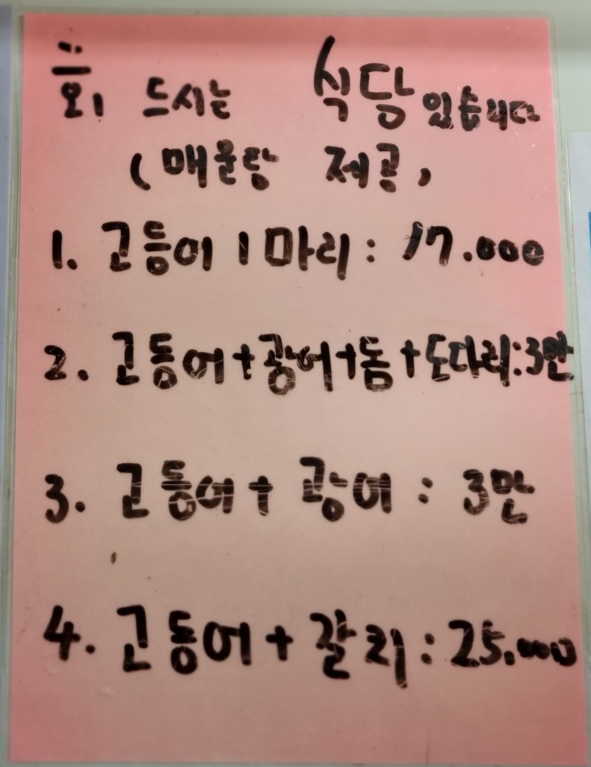 회 드시는 식당 있습니다
(매운탕 제공)
1. 고등어 1마리: 17.000
2. 고등어+광어+돔+도다리:3만
3. 고등어+ 광어 : 3만
4. 고등어+ 갈치:25.000